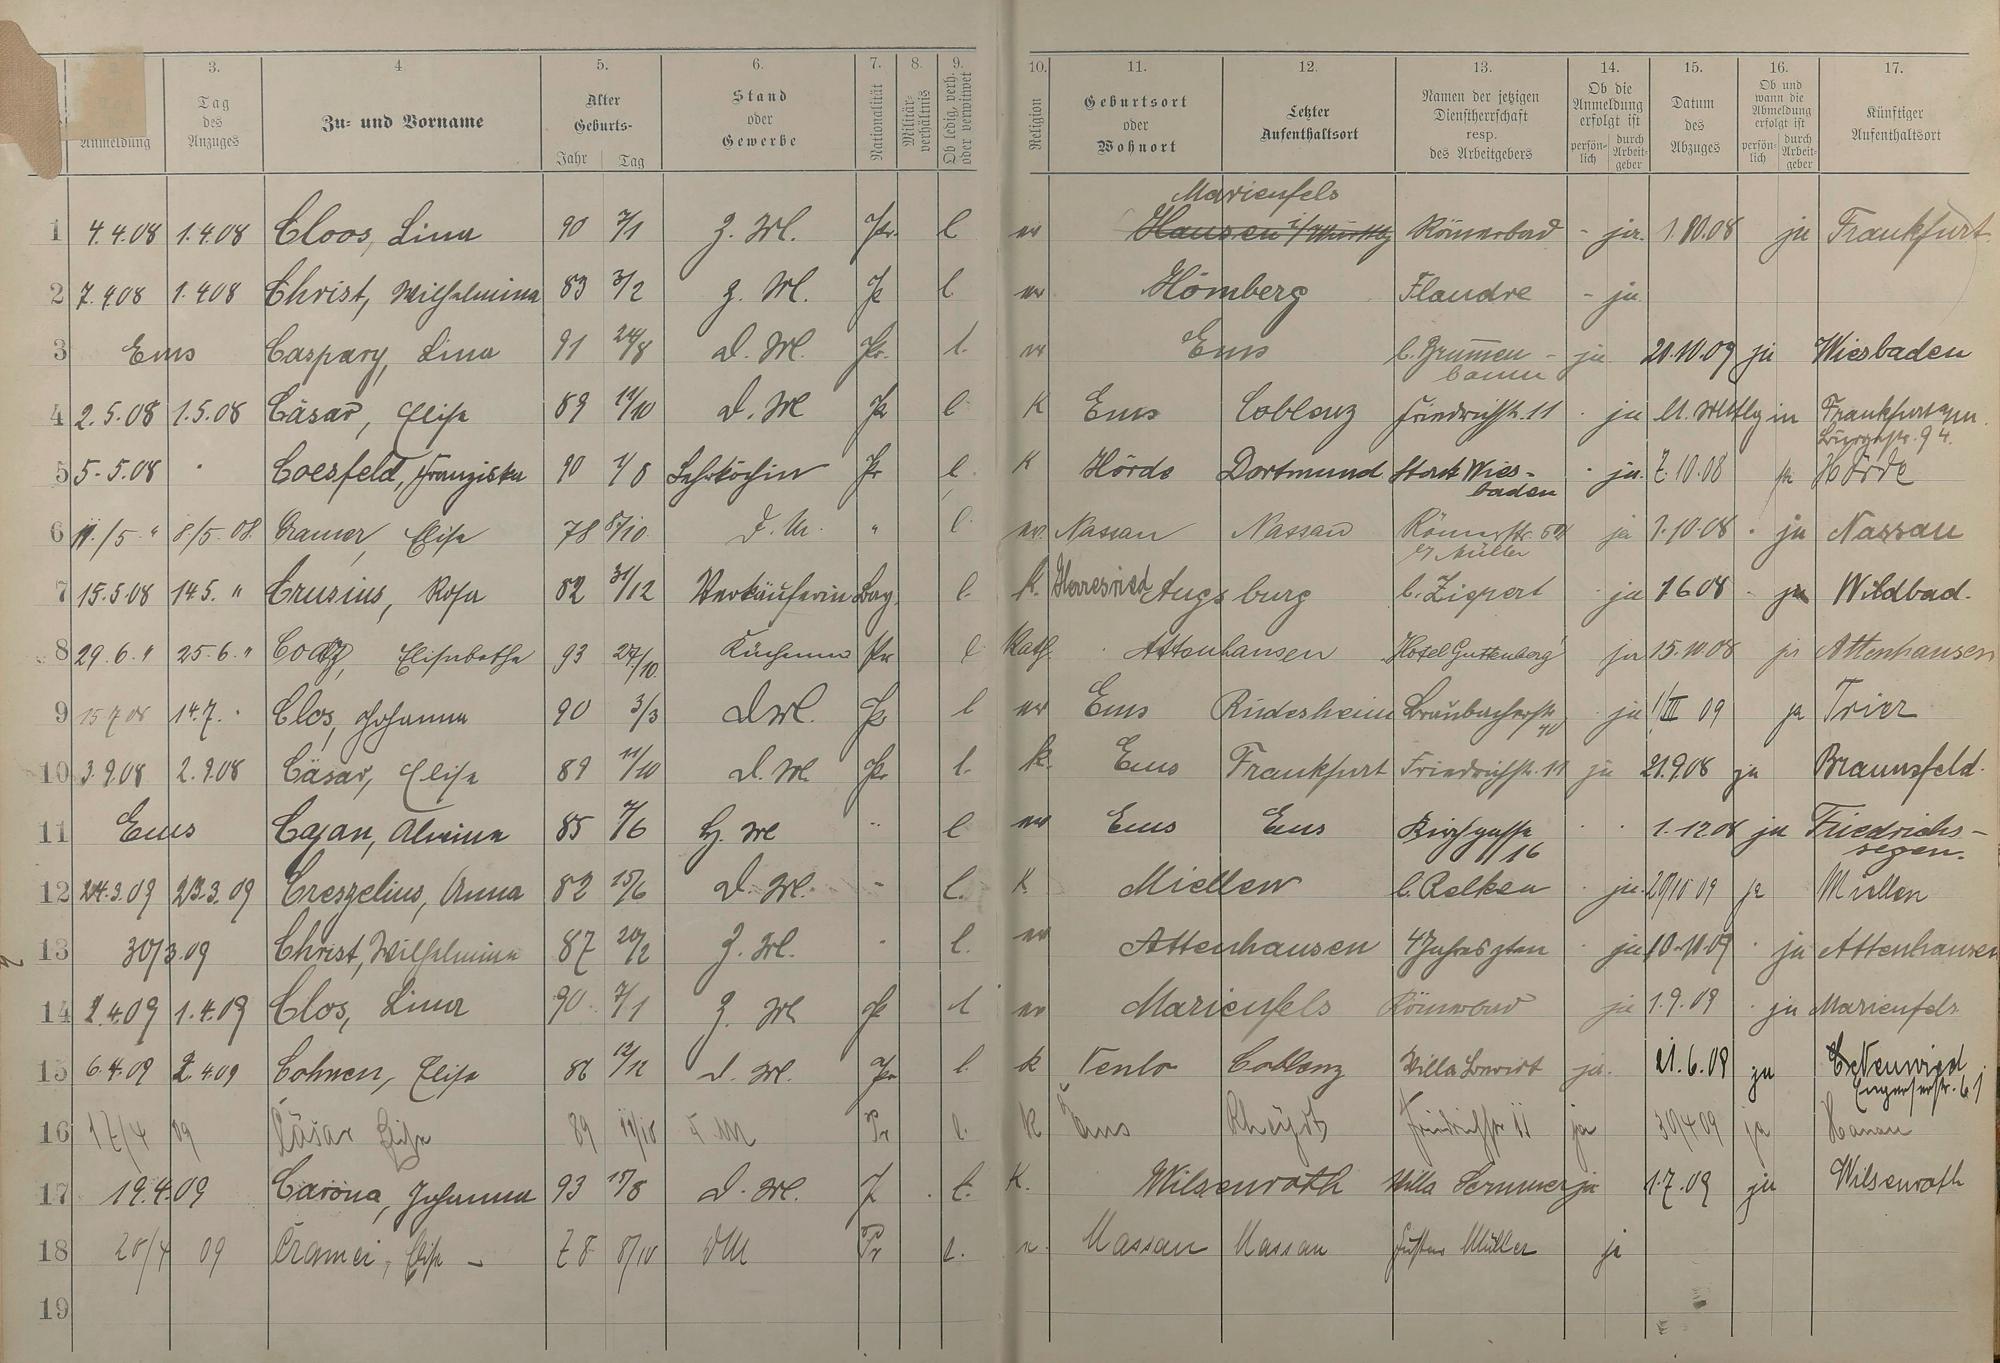 3. 4 5. 6. 7. 8. 9. 10. 11. 12. 13. 14. 15. 16. 17.
Anmeldung
Tag des Anzuges
Zu- und Vorname
Alter
Geburts-
Jahr Tag
Stand oder Gewerbe
Nationalität
Militär-verhältnis
Ob ledig, verh. oder verwitwet
Religion
Geburtsort oder Wohnort
Letzter Aufenthaltsort
Namen der jetzigen Dienstherrschaft resp. des Arbeitgebers
Ob die Anmeldung erfolgt ist
persön-lich durch Arbeit-geber
Datum des Abzuges
Ob und wann die Abmeldung erfolgt ist
persön-lich durch Arbeit-geber
Künftiger Aufenthaltsort
Marienfels
1 4.4.08 1.4.08 Cloos, Lina 90 7/1 Z. Ml. Pr. l ev Hausen Römerbad - ja. 1.10.08 ja Frankfurt
2 7.4.08 1.4.08 Christ, Wilhelmina 83 3/2 Z. Ml. Pr l. ev Hömberg Flandre - ja
3 Ems Caspary, Lina 91 24/8 D. Ml. Pr. l. ev Ems b. Brunnen - ja 20.10.09 ja Wiesbaden
4 2.5.08 1.5.08 Cäsar, Elise 89 11/10 D. Ml Pr l K Ems Coblenz Friedrichstr. 11 ja Frankfurt
94.
5 5.5.08 Coesfeld, Franziska 90 1/8 Lehrköchin Pr l. K Hörde Dortmund Stadt Wies-
baden ja. 7.10.08 ja Hörde
6 11./5. " 8/5. 08. Cramer, Elise 78 8/10 D. M. " l. ev. Nassau Nassau Römerstr.
Müller ja 7.10.08 ja Nassau
7 15.5.08 14.5. " Crusius, Rosa 82 31/12 Verkäuferin Bay. l. k. Augsburg b. Zigert ja 1.6.08 ja Wildbad.
8 29.6. " 25.6. " Elisabetha 93 27/10. Pr l Kath. Attenhausen Hotel Guttenberg ja 15.10.08 ja Attenhausen
9 15.7.08 14.7. Clos, Johanna 90 3/3 D Ml. Pr l ev Ems Rüdesheim Braubacherstr.
40 ja 1/III 09 ja Trier
10 3.9.08 2.9.08 Cäsar, Elise 89 11/10 D. Ml Pr l. k. Ems Frankfurt Friedrichstr. 11 ja 21.9.08 ja Braunsfeld.
11 Ems Cajan, Alwina 85 7/6 Z. Ml " l ev Ems Ems Kirchgasse
16 1.12.08 ja Friedrichs-
segen.
12 24.3.09 23.3.09 Creszelius, Anna 82 15/6 D. Ml. - l. K. Miellen b. Relken ja. 20/10 09 ja Miellen
13 30/3.09 Christ, Wilhelmina 87 20/2 Z. Ml. l. ev Attenhausen 4 Jahreszten ja 10.10.09 ja Attenhausen
14 2.4.09 1.4.09 Clos, Lina 90 7/1 Z. Ml Pr l ev Marienfels Römerbad ja 1.9.09 ja Marienfels
15 6.4.09 2.4.09 Cohnen, Elise 86 12/12 D. Ml. Pr l. k Venlo Coblenz Villa ja. 21.6.09 ja Neuwied
Engerserstr. 61
16 17/4 09 Cäsar Elise 89 11/10 D M Pr l. K Ems Rheydt Friedrichstr 11 ja 30/4 09 ja Hanau
17 19.4.09 Carona, Johanna 93 15/8 D. Ml. l. K. Wilsenroth Villa Sommer ja 1.7.09 ja Wilsenroth
18 20/4 09 Cramer, Elise - 78 8/10 D M Pr l. Nassau Nassau Gustav Müller ja
19